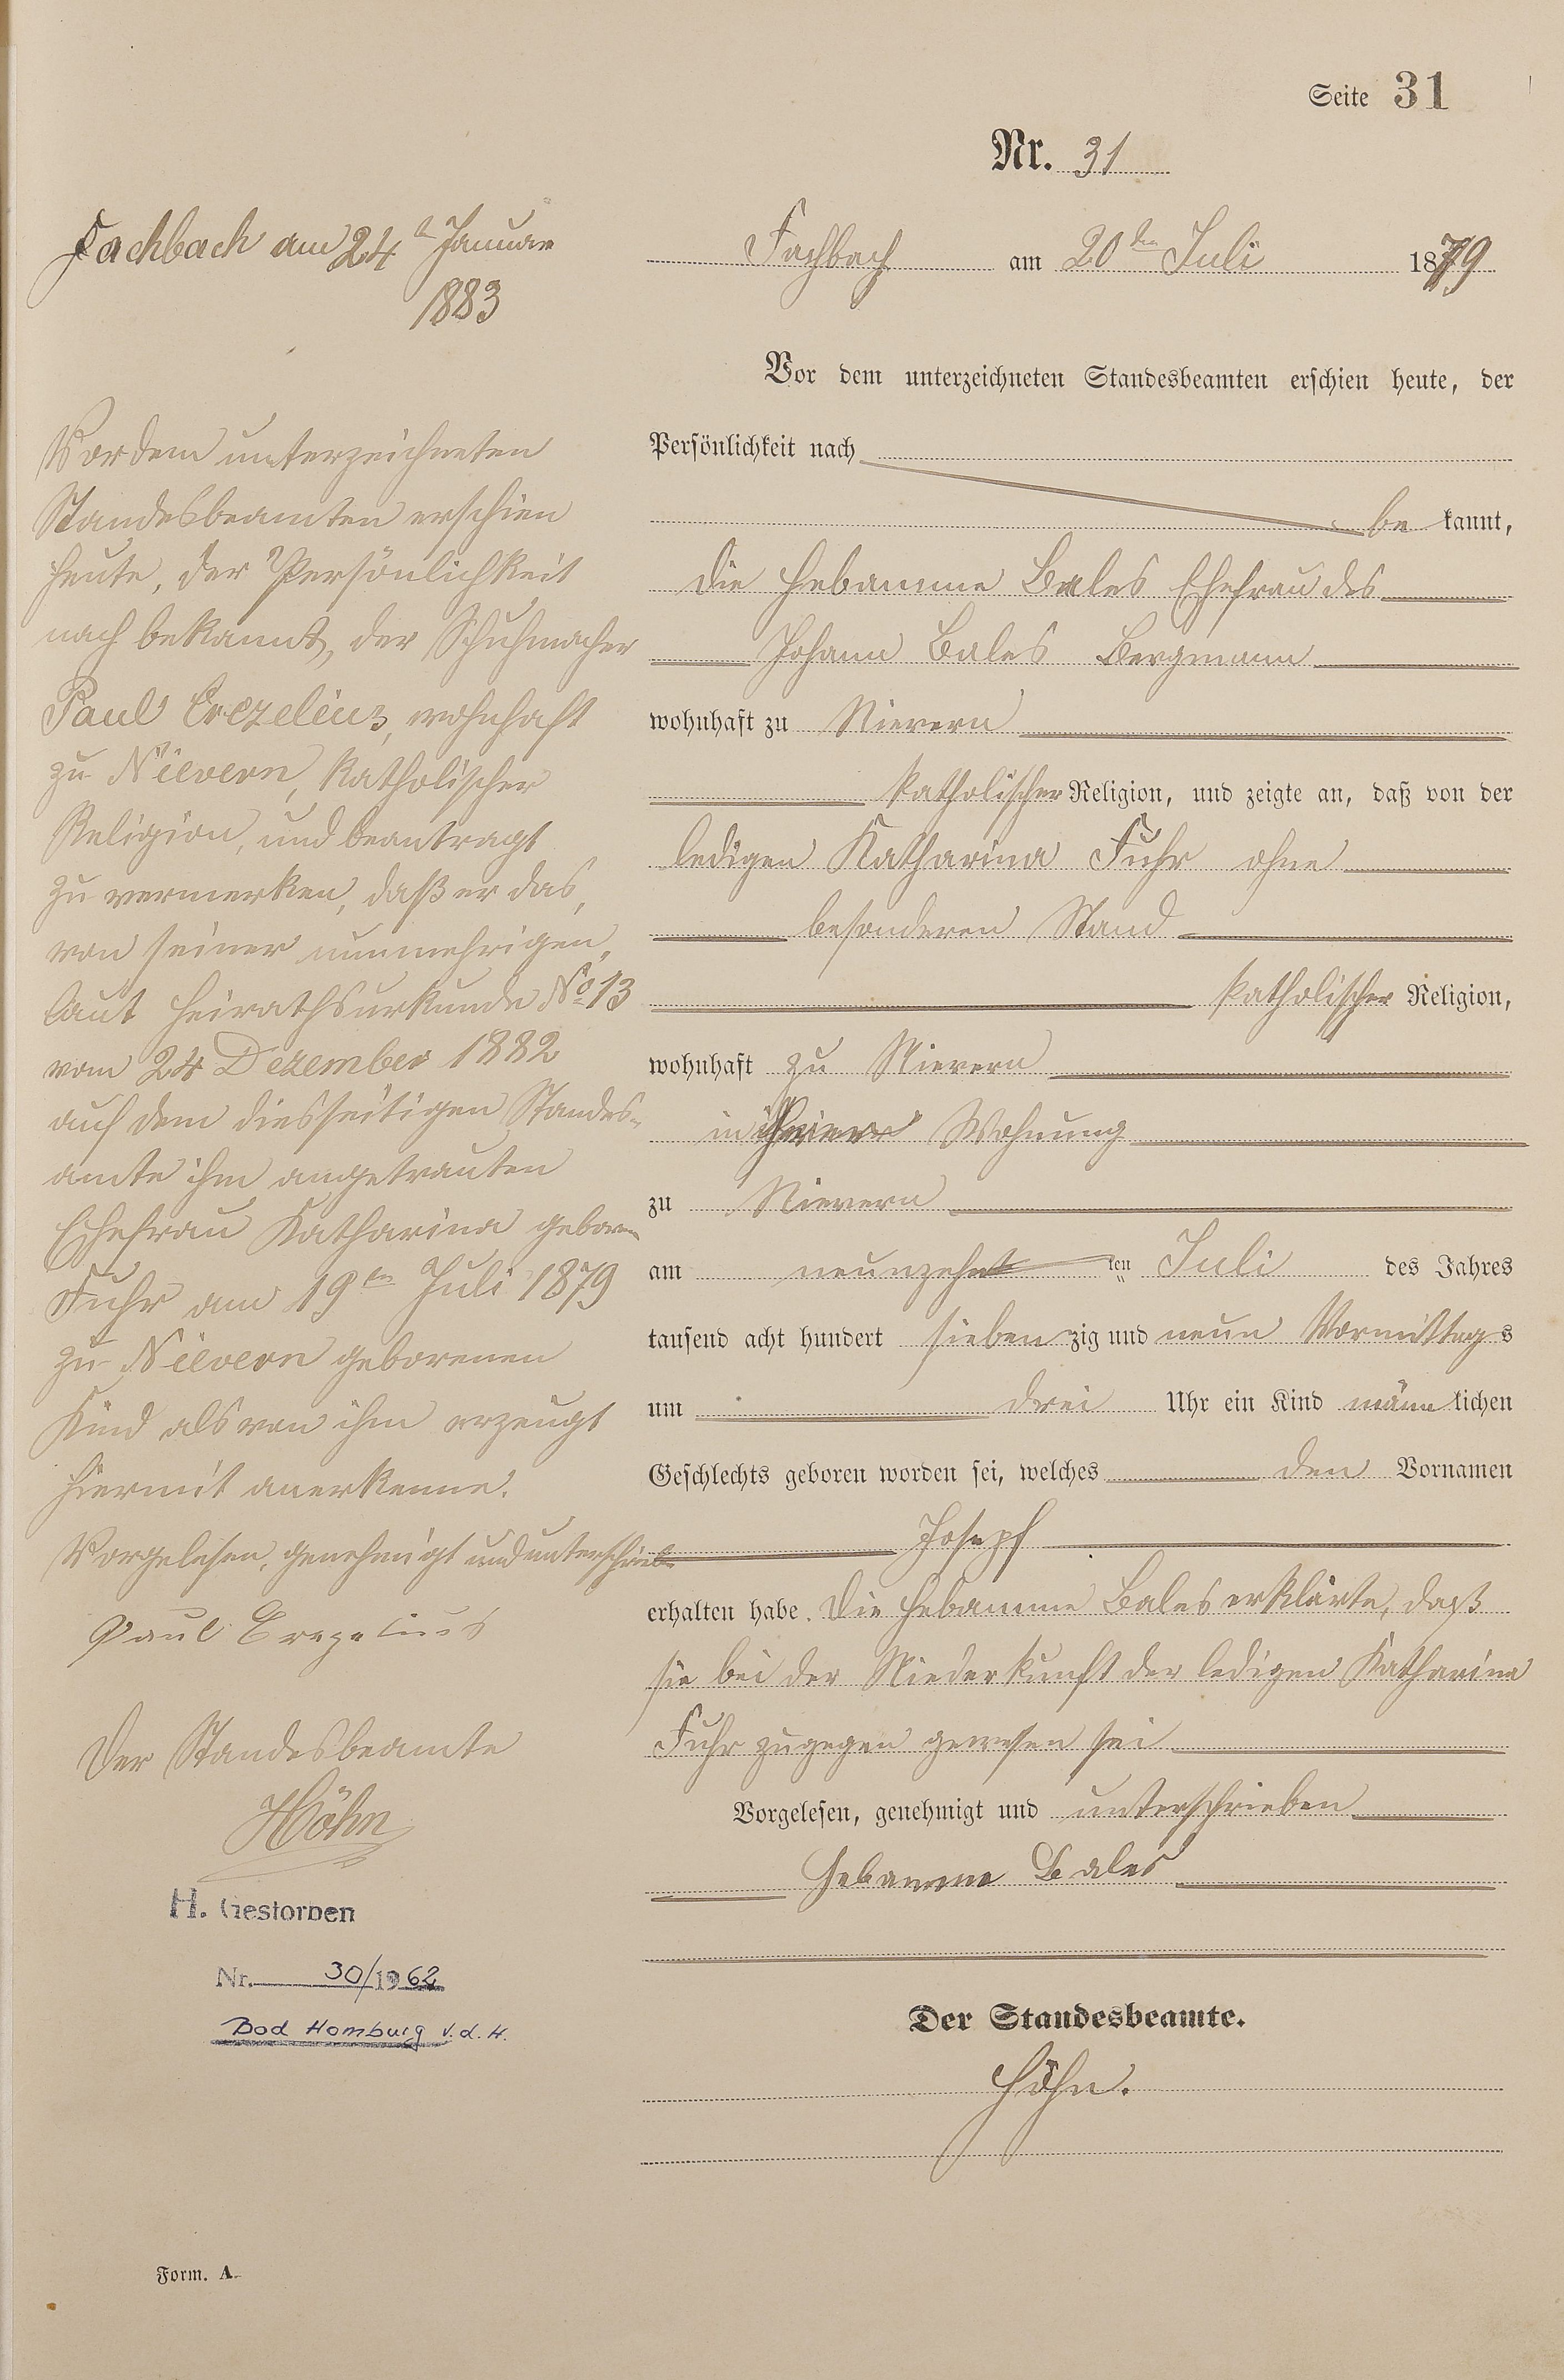 Seite 31
Nr. 31
Fachbach am 20ten Juli 1879
Vor dem unterzeichneten Standesbeamten erschien heute, der
Persönlichkeit nach
be kannt,
die Hebamme Bales Ehefrau des
Johann Bales Bergmann
wohnhaft zu Nievern
katholischer Religion, und zeigte an, daß von der
ledigen Katharina Fuhr ohne
besonderen Stand
katholischer Religion,
wohnhaft zu Nievern
in ihrer Wohnung
zu Nievern
am neunzehn ten Juli des Jahres
tausend acht hundert sieben zig und neun Vormittags
um drei Uhr ein Kind männlichen
Geschlechts geboren worden sei, welches den Vornamen
Joseph
erhalten habe. Die Hebamme Bales erklärte, daß
sie bei der Niederkunft der ledigen Katharina
Fuhr zugegen gewesen sei
Vorgelesen, genehmigt und unterschrieben
Hebamme Bales
Der Standesbeamte.
Höhn.
Fachbach am 24n Januar
1883
Vor dem unterzeichneten
Standesbeamten erschien
heute, der Persönlichkeit
nach bekannt, der Schuhmacher
Paul Crezelius, wohnhaft
zu Nievern, katholischer
Religion, und beantragt
zu vermerken, daß er das,
von seiner nunmehrigen,
laut Heirathsurkunde No 13
vom 24 Dezember 1882
auf dem diesseitigen Standes-
amte ihm angetrauten
Ehefrau Katharina geboren
Fuhr am 19ten Juli 1879
zu Nievern geborenen
Kind als von ihm erzeugt
hiermit anerkenne.
Vorgelesen, genehmigt und unterschrieben
Paul Crezelius
Der Standesbeamte
Höhn
H. Gestorben
Nr. 30/1962
Bad Homburg v.d.H.
Form. A.